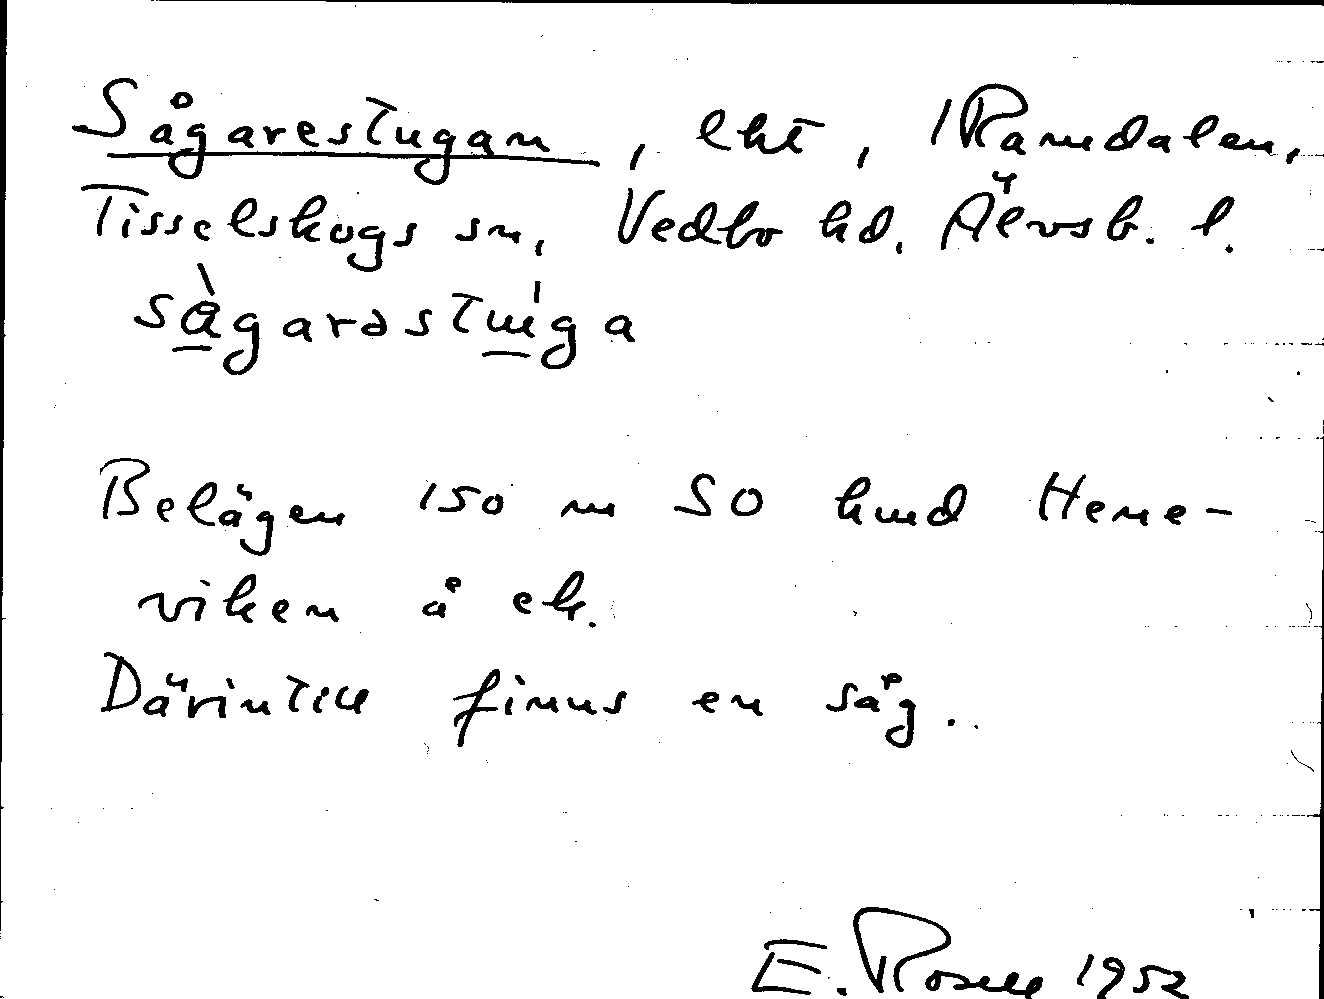 Sågarestugan, lht, Ramdalen,
Tisselskogs sn, Vedbo hd. Älvsb. l.
sàgarəstúga
Belägen 150 m SO hmd Hene-
viken å ek.
Därintill finns en såg.
E. Rosell 1952